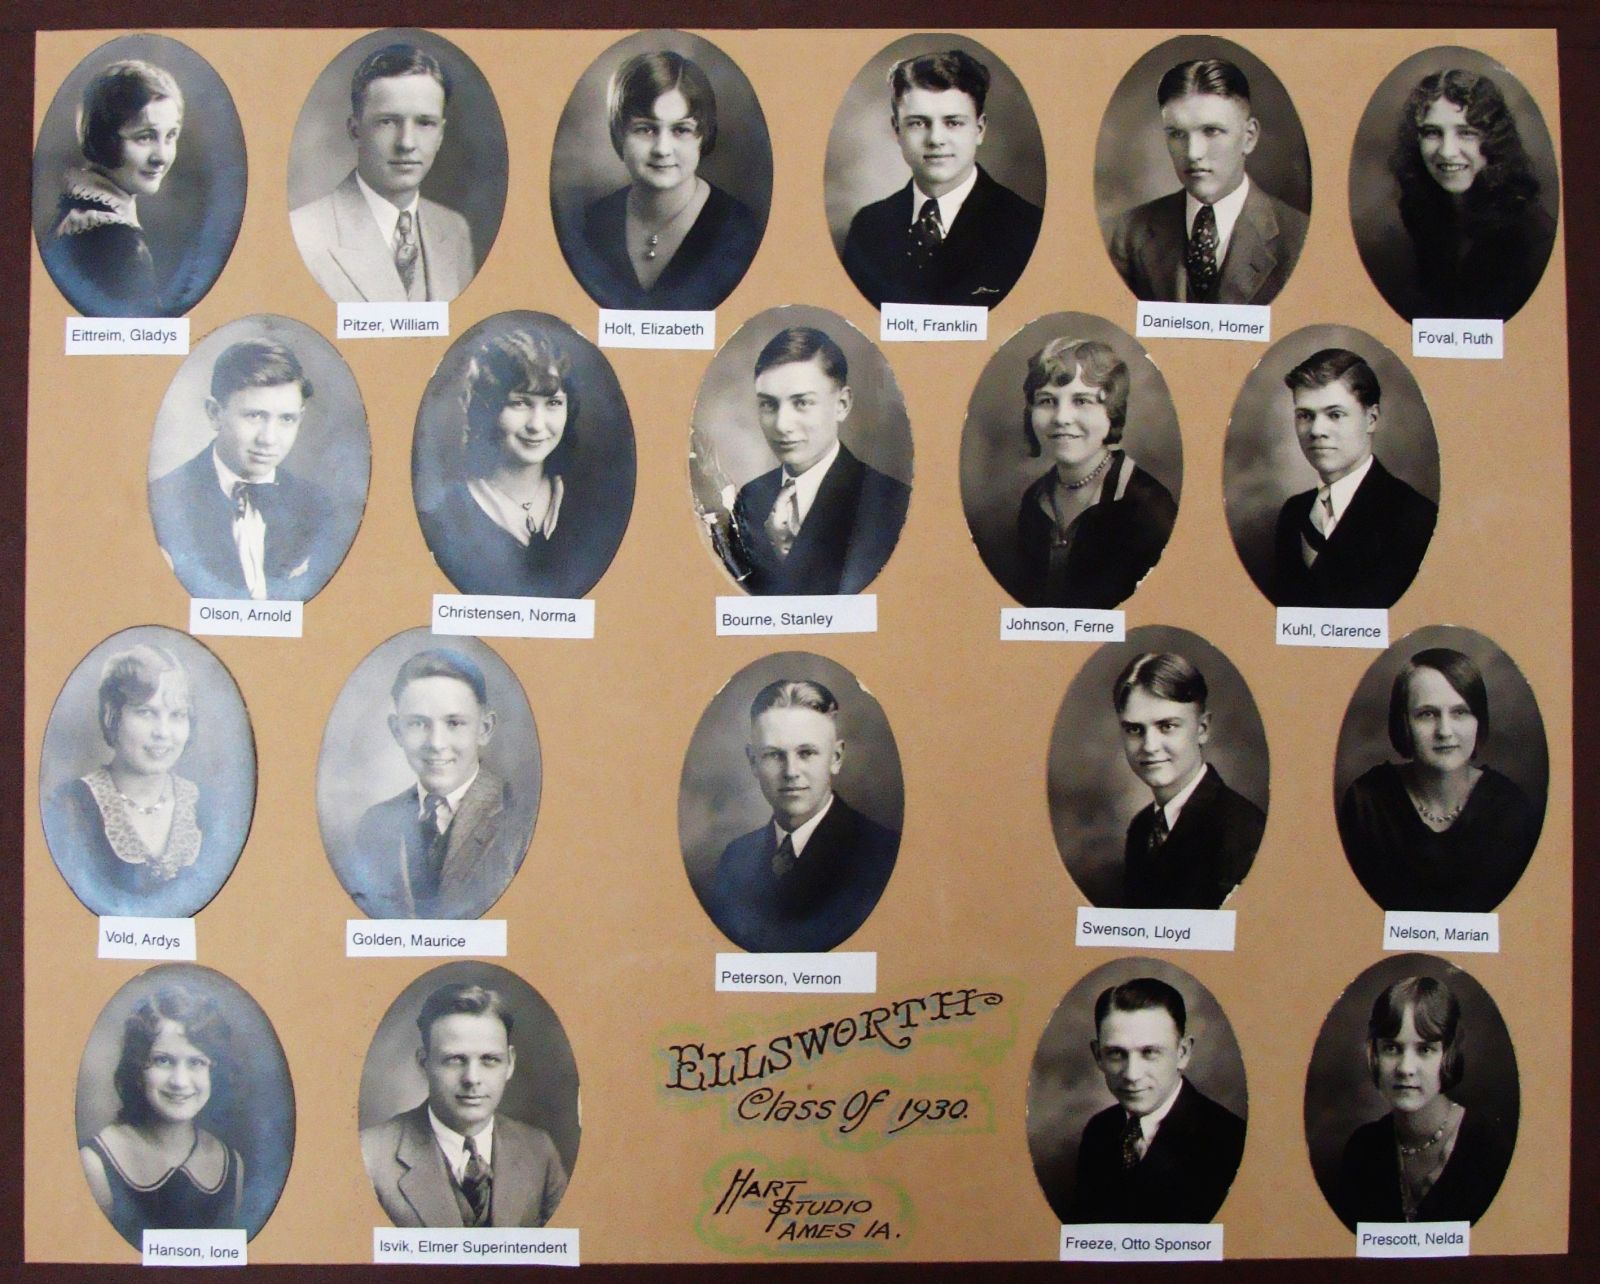 Eittreim, Gladys
Pitzer, William
Holt, Elizabeth
Holt, Franklin
Danielson, Homer
Foval, Ruth
Olson, Arnold
Christensen, Norma
Bourne, Stanley
Johnson, Ferne
Kuhl, Clarence
Vold, Ardys
Golden, Maurice
Peterson, Vernon
Swenson, Lloyd
Nelson, Marian
Hanson, Ione
Isvik, Elmer Superintendent
ELLSWORTH
Class Of 1930.
HART
STUDIO
AMES IA.
Freeze, Otto Sponsor
Prescott, Nelda